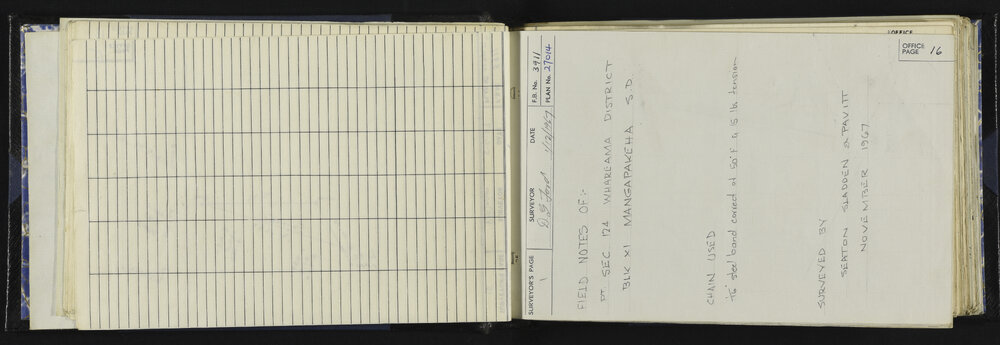 OFFICE
OFFICE PAGE 16
SURVEYOR'S PAGE 1
SURVEYOR
DATE 1/12/1967
F.B. No. 3911
PLAN No. 27014
FIELD NOTES OF:-
PT. SEC 124 WHAREAMA DISTRICT
BLK XI MANGAPAKEHA S.D.
CHAIN USED
steel band correct at 50°F & 15 lb tension
SURVEYED BY
SEATON SLADDEN & PAVITT
NOVEMBER 1967